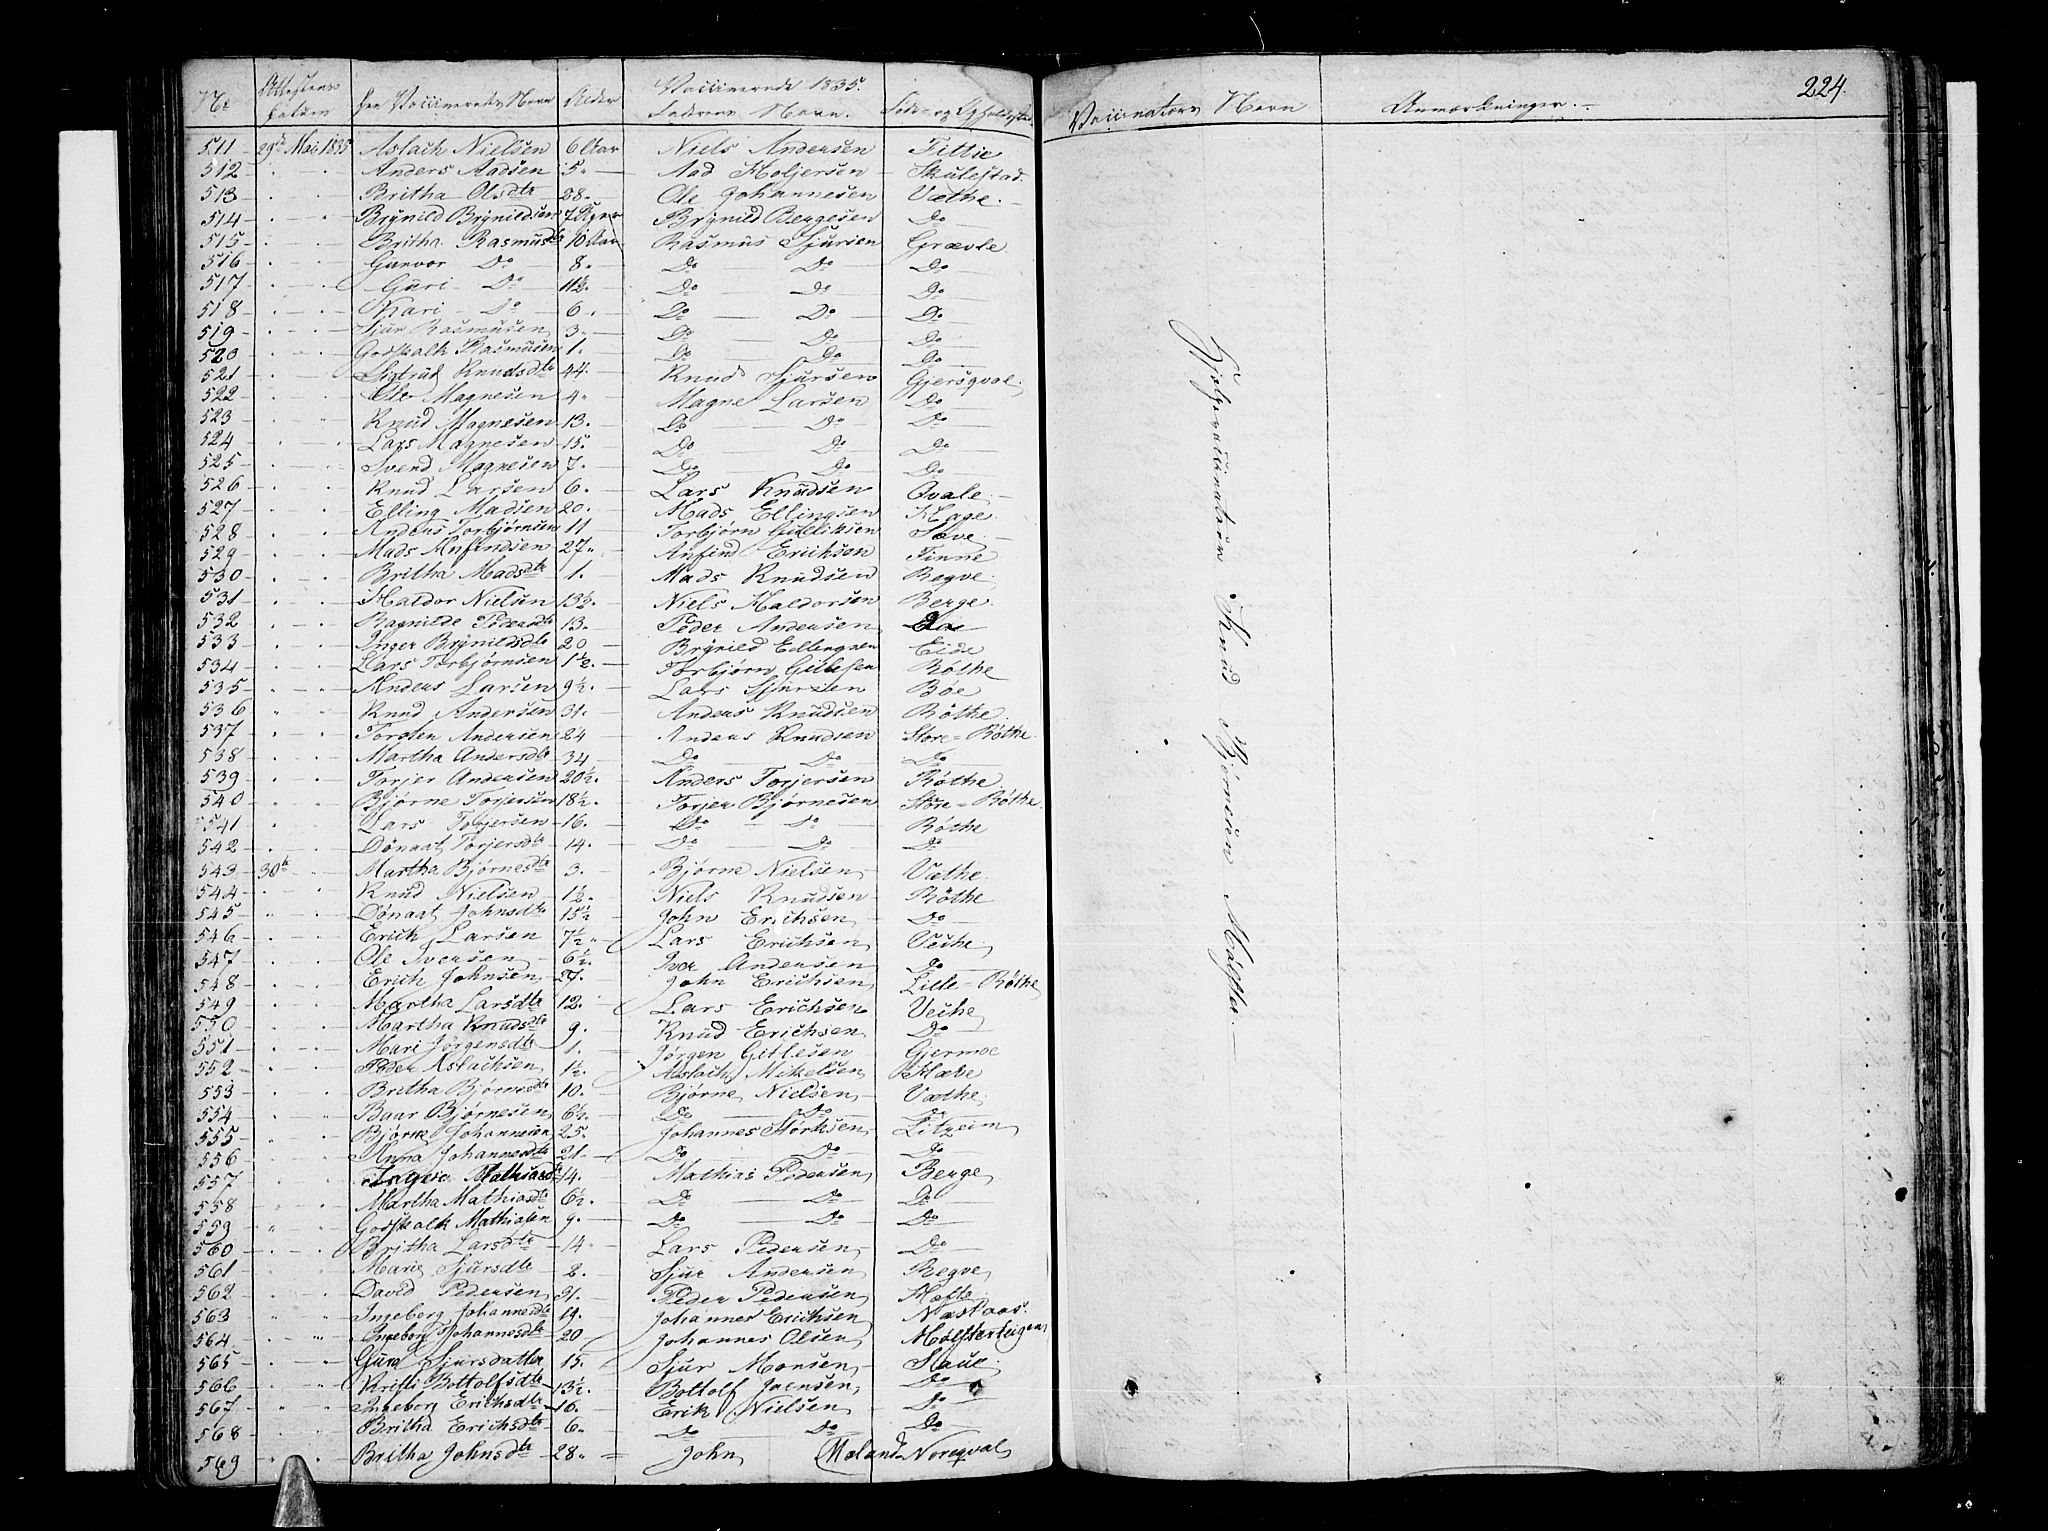 Vaccinerede 1835.
No Attestens Datum Den Vaccineredes Navn Alder Faderens Navn. Føde- og Opholdssted
511 29de Mai 1835 Aslach Nielsen 6 Aar Niels Andersen Tillie
512 Anders Aadsen 5 Aad Holjersen Skulestad
513 Britha Olsdtr 28 Ole Johannesen Væthe
514 Brynild Brynildsen 7 Uger Brynild Bergesen Do
515 Britha Rasmusdtr 10 Aar Rasmus Sjursen Grævle
516 Gunvor Do 8 Do Do Do
517 Guri Do 11½ Do Do Do
518 Kari Do 6 Do Do Do
519 Sjur Rasmusen 3 Do Do Do
520 Godskalk Rasmusen 1 Do Do Do
521 Sigtrud Knudsdtr 44 Knud Sjursen Gjersqval
522 Ole Magnesen 4 Magne Larsen Do
523 Knud Magnesen 13 Do Do Do
524 Lars Magnesen 15 Do Do Do
525 Svend Magnesen 7 Do Do Do
526 Knud Larsen 6 Lars Knudsen Qvale
527 Elling Madsen 20 Mads Ellingsen Hage
528 Anders Torbjørnsen 11 Torbjørn Gulliksen Sæve
529 Mads Anfindsen 27 Anfind Erichsen Finne
530 Britha Madsdtr 1 Mads Knudsen Rogve
531 Haldor Nielsen 13½ Niels Haldorsen Berge
532 Ragnilde Pedersdtr 13 Peder Andersen
533 Inger Brynildsdtr 20 Brynild Ellingsen Eide
534 Lars Torbjørnsen 1½ Torbjørn Gitlesen Røthe
535 Anders Larsen 9½ Lars Sjursen Bøe
536 Knud Andersen 31 Anders Knudsen Røthe
537 Torsten Andersen 24 Anders Knudsen Store=Røthe
538 Martha Andersdtr 34 Do Do Do
539 Torjer Andersen 20½ Anders Torjersen Røthe
540 Bjørne Torjersen 18½ Torjer Bjørnesen Store=Røthe
541 Lars Torjersen 16 Do Do Røthe
542 Dønaat Torjersdtr 14 Do Do Do
543 30te Martha Bjørnesdtr 3 Bjørne Nielsen Væthe
544 Knud Nielsen 1½ Niels Knudsen Røthe
545 Dønaat Johnsdtr 15½ John Erichsen Do
546 Erick Larsen 7½ Lars Erichsen Vethe
547 Ole Iversen 6½ Iver Andersen Do
548 Erich Johnsen 27 John Erichsen Lille=Røthe
549 Martha Larsdtr 12 Lars Erichsen Vethe
550 Martha Knudsdtr 9 Knud Erichsen Do
551 Mari Jørgensdtr 1 Jørgen Gitlesen Gjermoe
552 Peder Aslachsen 1½ Aslach Mikelsen
553 Britha Bjørnesdtr 10 Bjørne Nielsen Væthe
554 Baar Bjørnesen 6½ Do Do Do
555 Bjørne Johannesen 25 Johannes Størksen Litzeim
556 Anna Johannesdtr 21 Do Do Do
557 Mathiasdtr 14 Mathias Pedersen Berge
558 Martha Mathiasdtr 6½ Do Do Do
559 Godskalk Mathiasen 9 Do Do Do
560 Britha Larsdtr 14 Lars Pedersen Do
561 Marie Sjursdtr 2 Sjur Andersen Rogve
562 David Pedersen 31 Peder Pedersen
563 Ingeborg Johannesdtr 19 Johannes Erichsen Næstaas
564 Ingeborg Johannesdtr 20 Johannes Olsen Mølsterteigen
565 Guro Sjursdatter 15 Sjur Monsen Haue
566 Kristi Bottolfsdtr 13½ Bottolf Joensen Do
567 Ingeborg Erichsdtr 16 Erik Nielsen Do
568 Britha Erichsdtr 6 Do Do Do
569 Britha Johnsdtr 28 John Møland Noreqval
224.
Vaccinators Navn Anmærkninger.
Hjelpevaccinateur Knud Bjørnesen Mølster